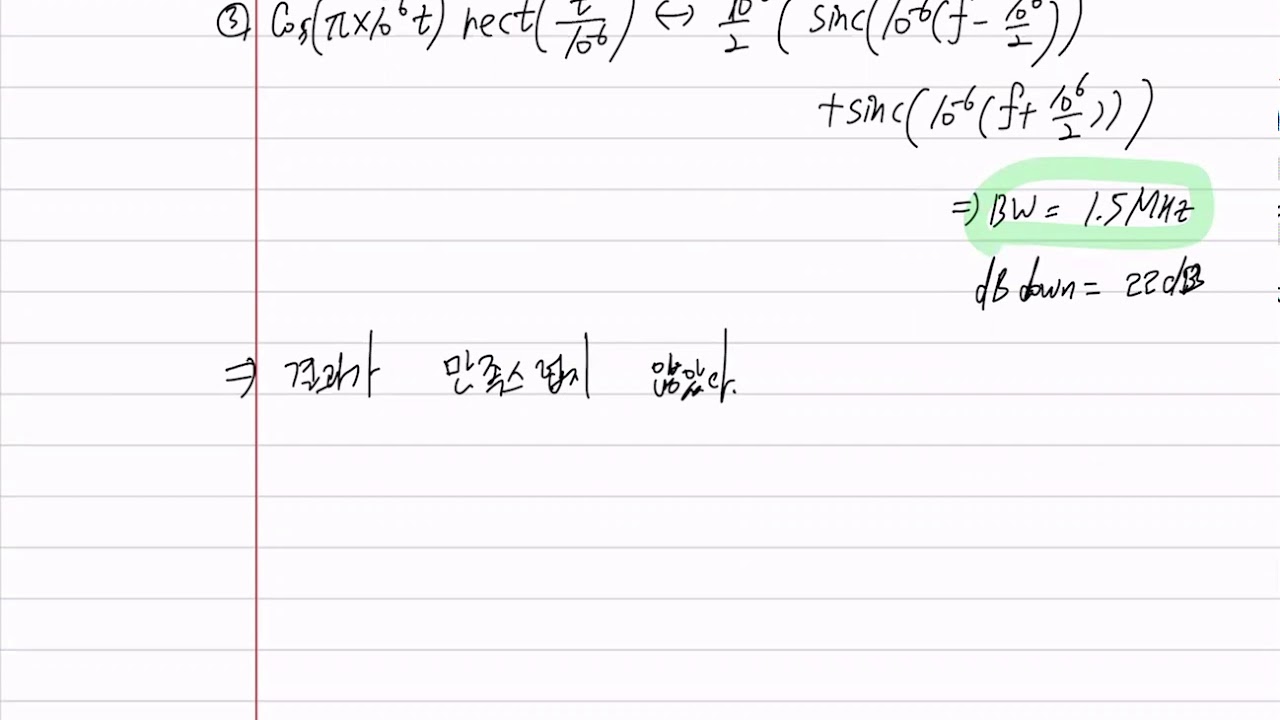 ③ Cos(π×10⁶t) rect(t/10⁻⁶) ↔ 10⁻⁶/2 ( sinc(10⁻⁶(f - 10⁶/2))
+sinc(10⁻⁶(f+ 10⁶/2)))
⇒ BW = 1.5MHz
dB down = 22dB
⇒ 결과가 만족스럽지 않았다.